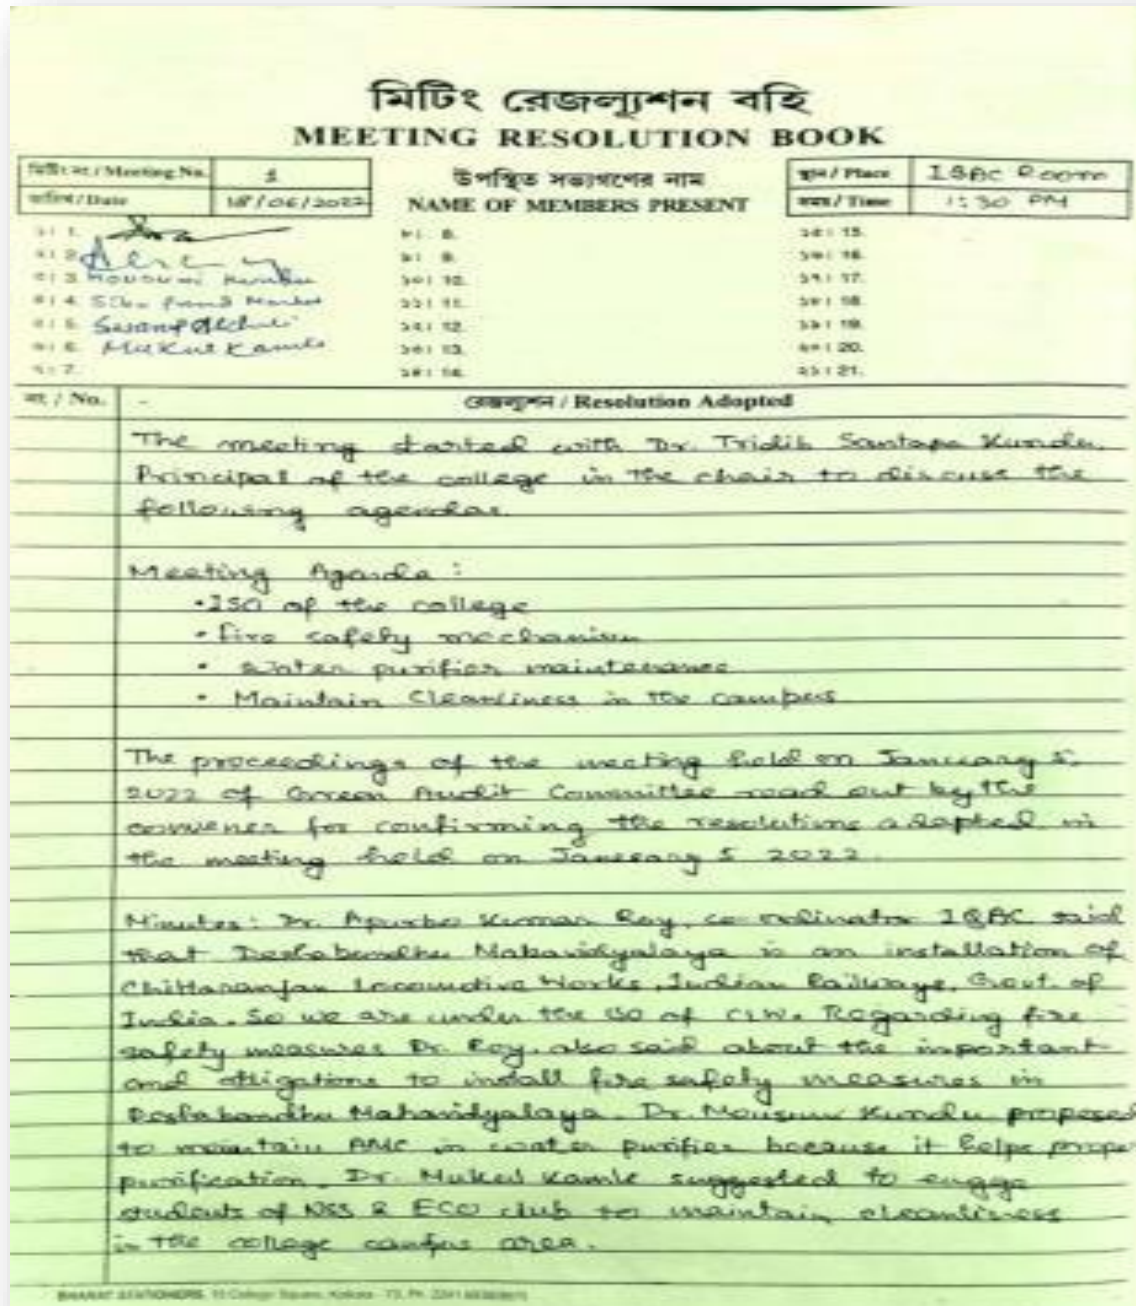 মিটিং রেজল্যুশন বহি
MEETING RESOLUTION BOOK
মিটিং নং / Meeting No. 1
তারিখ / Date 18/06/2022
উপস্থিত সভ্যগণের নাম
NAME OF MEMBERS PRESENT
স্থান / Place IQAC Room
সময় / Time 1:30 PM
১। 1.
২। 2.
৩। 3. Mousumi Kundu
৪। 4.
৫। 5.
৬। 6. Mukul Kamle
৭। 7.
৮। 8.
৯। 9.
১০। 10.
১১। 11.
১২। 12.
১৩। 13.
১৪। 14.
১৫। 15.
১৬। 16.
১৭। 17.
১৮। 18.
১৯। 19.
২০। 20.
২১। 21.
নং / No. - রেজল্যুশন / Resolution Adopted
The meeting started with Dr. Tridib Santapa Kundu,
Principal of the college in the chair to discuss the
following agendas.
Meeting Agenda :
• ISO of the college
• fire safety mechanism
• Water purifier maintenance
• Maintain Cleanliness in the campus
The proceedings of the meeting held on January 5,
2022 of Green Audit Committee read out by the
convener for confirming the resolutions adopted in
the meeting held on January 5 2022.
Minutes: Dr. Apurbo Kumar Roy, co-ordinator IQAC said
that Deshabandhu Mahavidyalaya is an installation of
Chittaranjan Locomotive Works, Indian Railways, Govt. of
India. So we are under the ISO of CLW. Regarding fire
safety measures Dr. Roy, also said about the important
and obligations to install fire safety measures in
Deshabandhu Mahavidyalaya. Dr. Mousumi Kundu proposed
to maintain AMC in water purifier because it helps proper
purification. Dr. Mukul Kamle suggested to engage
students of NSS & ECO club to maintain cleanliness
in the college campus area.
BHARAT STATIONERS, College Square, Kolkata - 73, Ph.